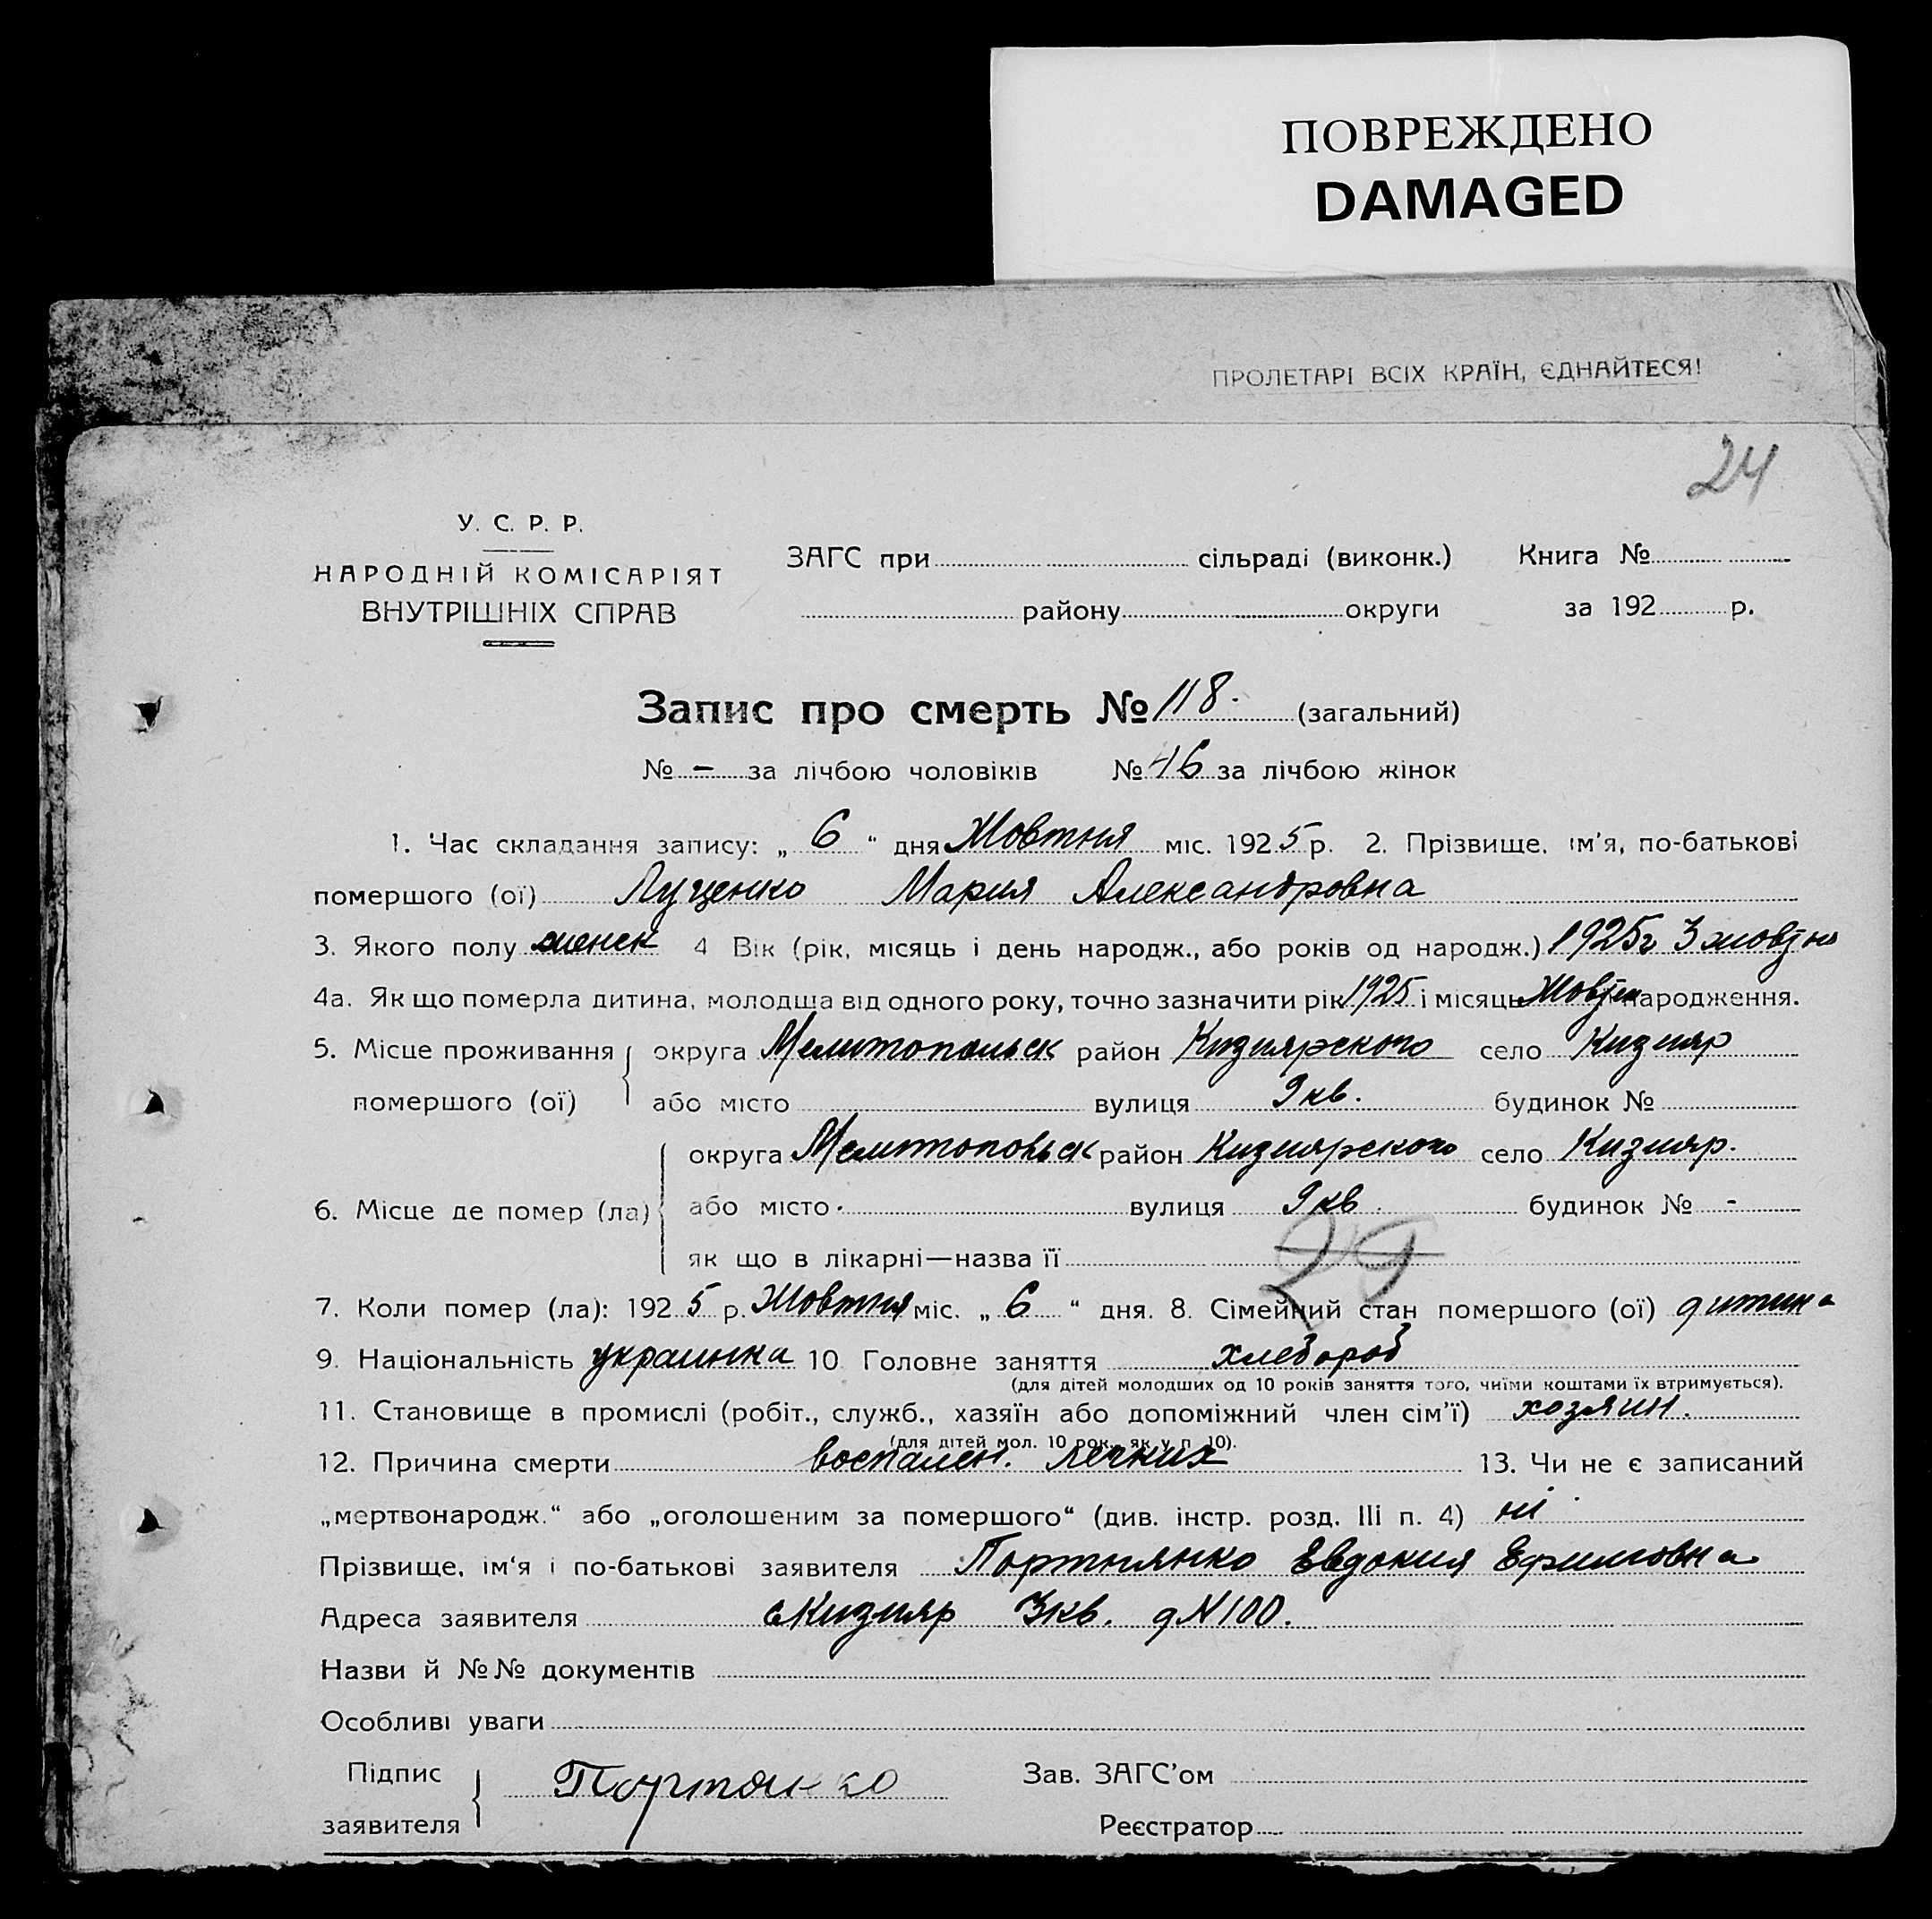 ПОВРЕЖДЕНО
DAMAGED
ПРОЛЕТАРІ ВСІХ КРАЇН, ЄДНАЙТЕСЯ!
24
У. С. Р. Р.
НАРОДНІЙ КОМІСАРІЯТ
ВНУТРІШНІХ СПРАВ
ЗАГС при сільраді (виконк.) Книга №
району округи за 192 р.
Запис про смерть № 118. (загальний)
№ – за лічбою чоловіків № 46 за лічбою жінок
1. Час складання запису: „ 6 “ дня Жовтня міс. 1925 р. 2. Прізвище, ім'я, по-батькові
помершого (ої) Луценко Мария Александровна
3. Якого полу женск 4 Вік (рік, місяць і день народж., або років од народж.) 1925г 3 жовтня
4а. Як що померла дитина, молодша від одного року, точно зазначити рік 1925 і місяць Жовтня народження.
5. Місце проживання округа Мелитопольск район Кизиярского село Кизияр
помершого (ої) або місто вулиця 9 кв. будинок №
округа Мелитопольск район Кизиярского село Кизияр.
6. Місце де помер (ла) або місто вулиця 9 кв. будинок № -
як що в лікарні—назва її
29
7. Коли помер (ла): 1925 р. Жовтня міс. „ 6 “ дня. 8. Сімейний стан помершого (ої) дитина
9. Національність украинка 10 Головне заняття хлебороб
(для дітей молодших од 10 років заняття того, чиїми коштами їх втримується).
11. Становище в промислі (робіт., служб., хазяїн або допоміжний член сім'ї) хозяин.
(для дітей мол. 10 рок., як у п. 10).
12. Причина смерти воспален. легких 13. Чи не є записаний
„мертвонародж.“ або „оголошеним за помершого“ (див. інстр. розд. III п. 4) ні
Прізвище, ім'я і по-батькові заявителя Портянко Евдокия Ефимовна
Адреса заявителя с Кизияр 3 кв. д N 100.
Назви й №№ документів
Особливі уваги
Підпис заявителя Портянко Зав. ЗАГС'ом
Реєстратор